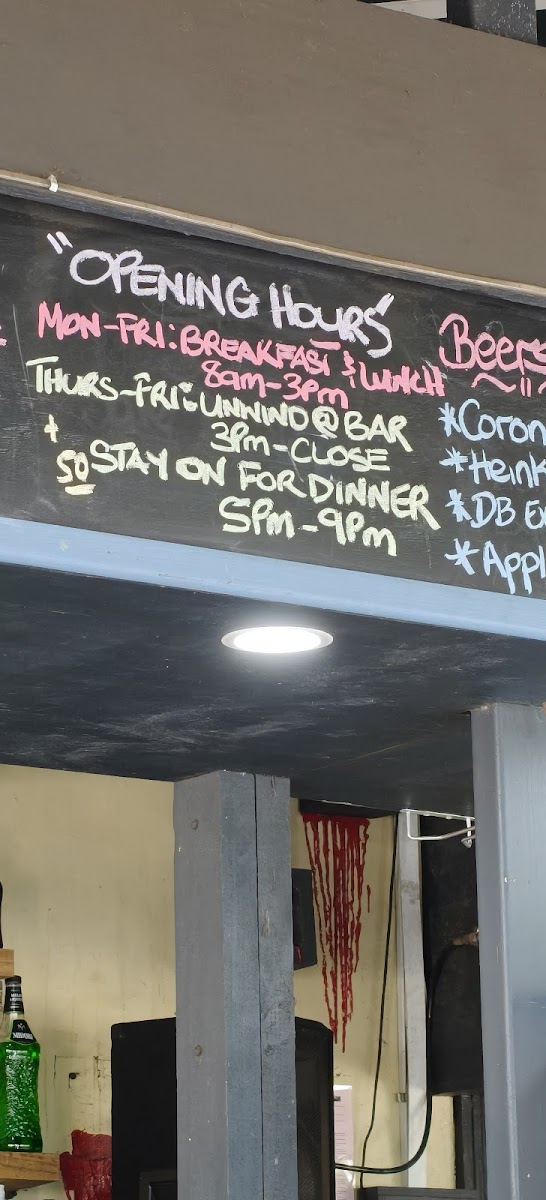 "OPENING HOURS"
MON-FRI: BREAKFAST & LUNCH
8am-3pm
THURS-FRI: UNWIND @ BAR
3pm-CLOSE
+
SO STAY ON FOR DINNER
5pm-9pm
Beers
*Coron
*Heink
*DB Ex
*Appl
MIDORI